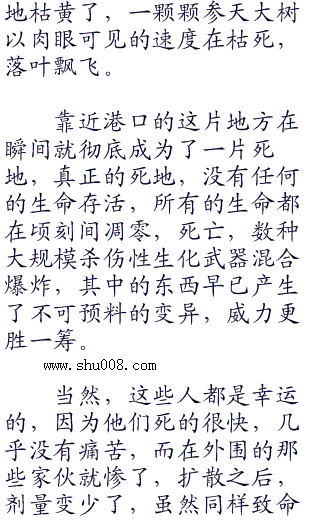 地枯黄了，一颗颗参天大树
以肉眼可见的速度在枯死，
落叶飘飞。
靠近港口的这片地方在
瞬间就彻底成为了一片死
地，真正的死地，没有任何
的生命存活，所有的生命都
在顷刻间凋零，死亡，数种
大规模杀伤性生化武器混合
爆炸，其中的东西早已产生
了不可预料的变异，威力更
胜一筹。
www.shu008.com
当然，这些人都是幸运
的，因为他们死的很快，几
乎没有痛苦，而在外围的那
些家伙就惨了，扩散之后，
剂量变少了，虽然同样致命